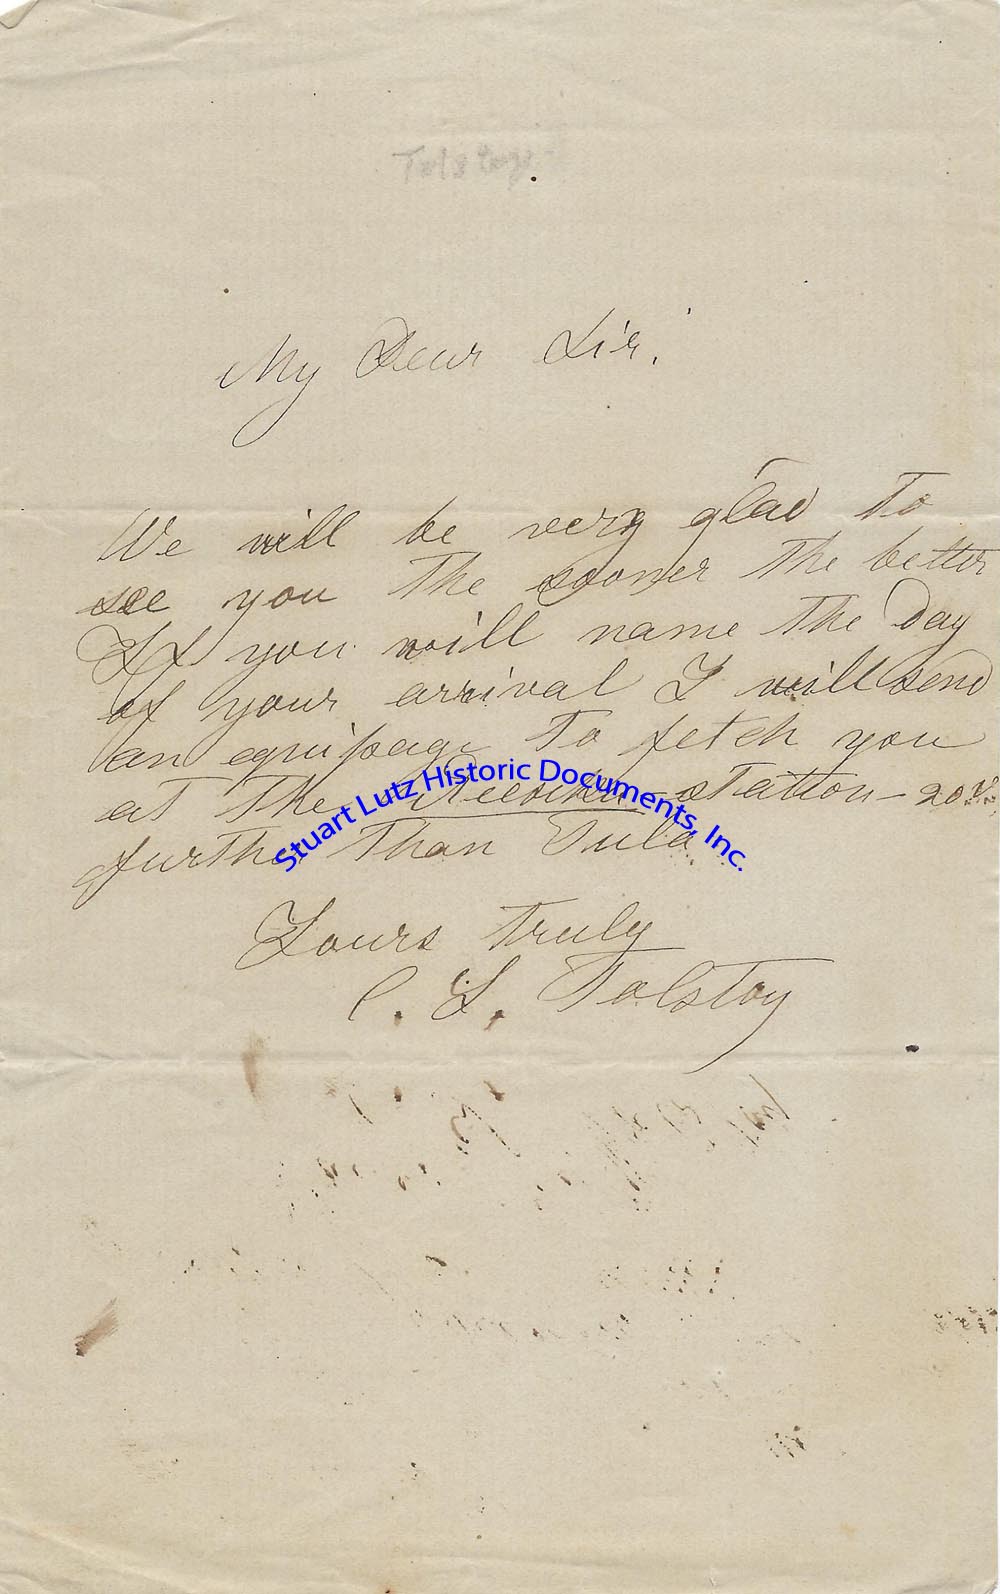 Tolstoy
My Dear Sir.
We will be very glad to
see you the sooner the better
If you will name the day
of your arrival I will send
an equipage to fetch you
at the station - 20 v.
further than Tula
Yours truly
C. L. Tolstoy
Stuart Lutz Historic Documents, Inc.